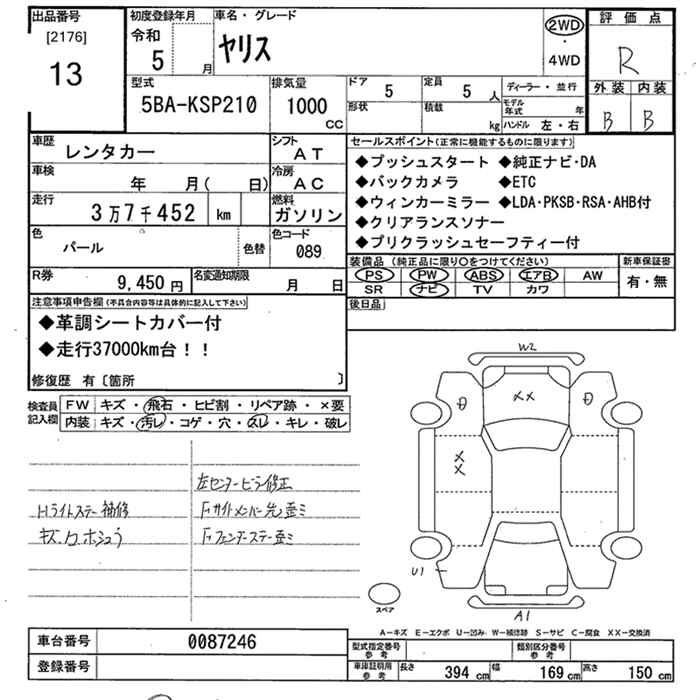 出品番号 初度登録年月 車名・グレード 評価点
[2176] 令和 ヤリス 2WD
13 5 月 ・ 4WD R
型式 排気量 ドア 5 定員 5 人 ディーラー・並行 外装 内装
5BA-KSP210 1000 cc 形状 積載 kg モデル年式 年 B B
ハンドル 左・右
車歴 レンタカー シフト AT セールスポイント(正常に機能するものに限ります)
車検 年 月( 日) 冷房 AC
◆プッシュスタート ◆純正ナビ・DA
◆バックカメラ ◆ETC
走行 3万7千452 km 燃料 ガソリン
◆ウィンカーミラー ◆LDA・PKSB・RSA・AHB付
◆クリアランスソナー
色 パール 色替 色コード 089
◆プリクラッシュセーフティー付
R券 9,450円 名変通知期限 月 日
装備品 (純正品に限り○をつけてください) 新車保証書
PS PW ABS エアB AW 有・無
SR ナビ TV カワ
注意事項申告欄(不具合内容等は具体的に記入して下さい) 後日品
◆革調シートカバー付
◆走行37000km台!!
修復歴 有〔箇所 〕
検査員記入欄 FW キズ・飛石・ヒビ割・リペア跡・×要
内装 キズ・汚レ・コゲ・穴・スレ・キレ・破レ
左センターピラー修正
Hライトステー補修 Fサイドメンバー先歪ミ
Fフェンダーステー歪ミ
W2
XX
XX
U1
A1
スペア
A－キズ E－エクボ U－凹み W－補修跡 S－サビ C－腐食 XX－交換済
車台番号 0087246 型式指定番号 参考 類別区分番号 参考
登録番号 車庫証明用 参考 長さ 394 cm 幅 169 cm 高さ 150 cm